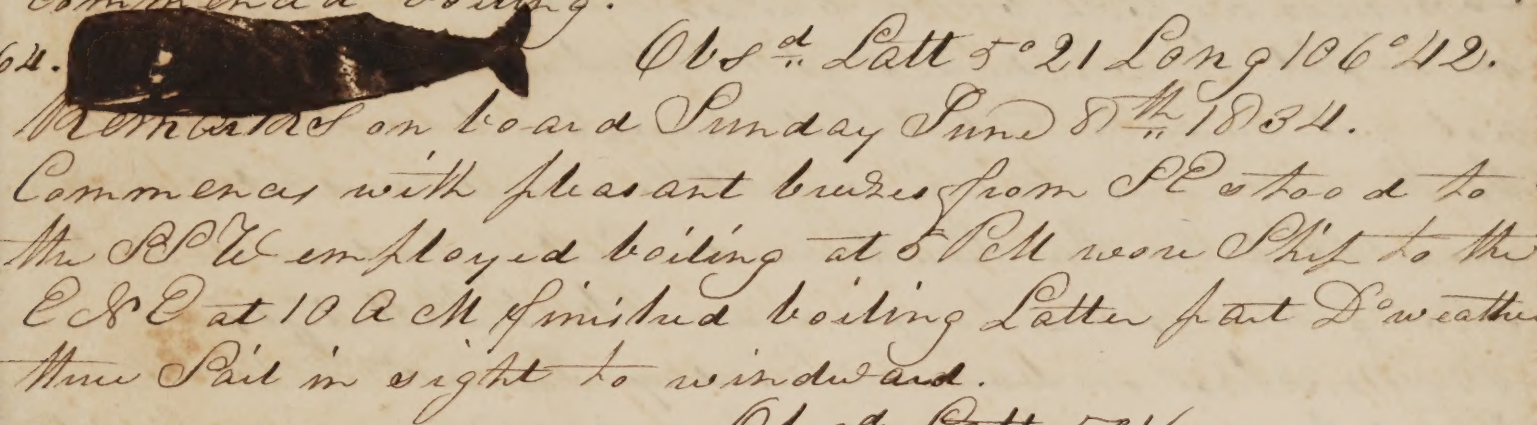 commenced boiling.
64. Obsd Latt 5°21 Long 106°42.
Remarks on board Sunday June 8th 1834.
Commences with pleasant breezes from SE stood to
the SSW employed boiling at 5 PM wore Ship to the
ENE at 10 AM finished boiling Latter part Do weather
three Sail in sight to windward.
Obsd Latt